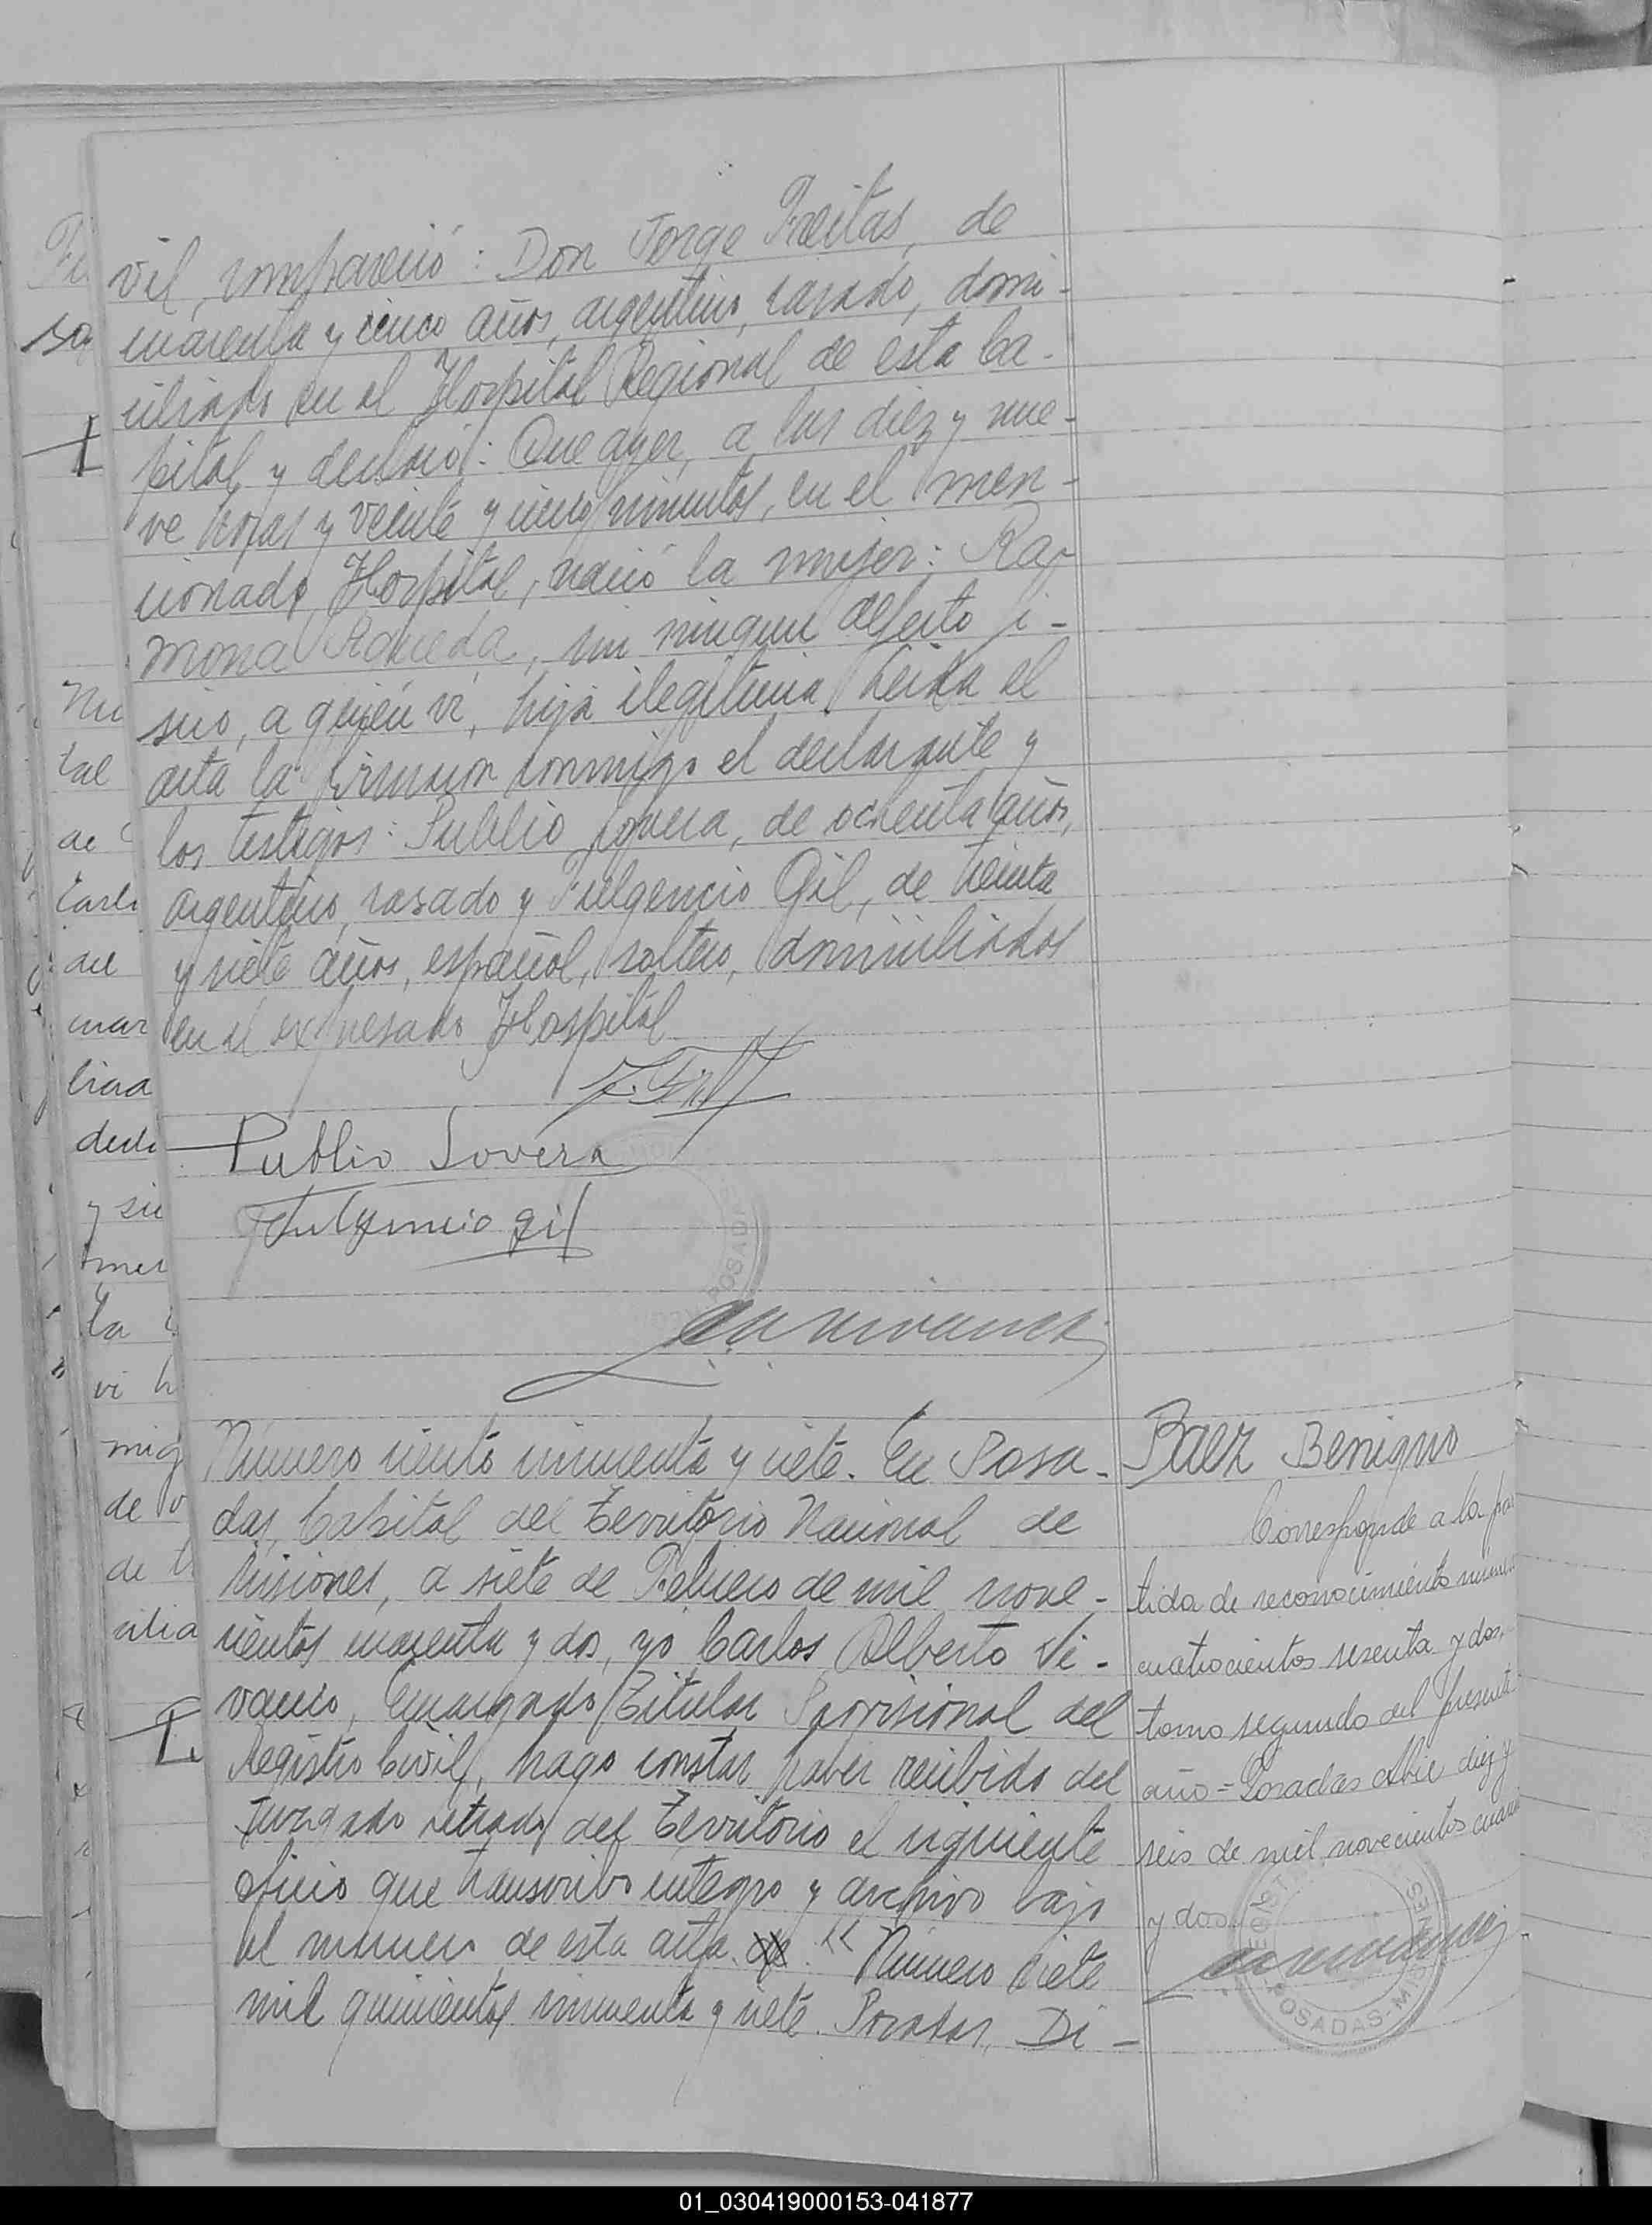 vil, compareció: Don Jorge Freitas, de
cuarenta y cinco años, argentino, casado, domi-
ciliado en el Hospital Regional de esta Ca-
pital y declaró: Que ayer, a las diez y nue-
ve horas y veinte y cinco minutos, en el men-
cionado Hospital, nació la mujer: Ra-
mona, sin ningun defecto fí-
sico, a quién ví, hija ilegitima. Leida el
acta la firmaron conmigo el declarante y
los testigos: Publio Lovera, de ochenta años,
argentino, casado y Fulgencio Gil, de treinta
y siete años, español, soltero, domiciliados
en el expresado Hospital
Publio Lovera
Fulgencio gil
Número ciento cincuenta y siete. En Posa-
das, Capital del Territorio Nacional de
Misiones, a siete de Febrero de mil nove-
cientos cuarenta y dos, yo Carlos Alberto Vi-
vanco, Encargado Titular Provisional del
Registro Civil, hago constar haber recibido del
Juzgado Letrado del Territorio el siguiente
oficio que transcribo integro y archivo bajo
el numero de esta acta. "Número siete
mil quinientos cincuenta y siete. Posadas, Di-
Baez Benigno
Corresponde a la par
tida de reconocimiento numero
cuatrocientos sesenta y dos,
tomo segundo del presente
año = Posadas diez y
seis de mil novecientos cuaren
y dos.
POSADAS - MISIONES
Fu
sa
Nu
tal
de
Carl
del
cuar
ciad
decla
y si
mer
la
vi h
mig
de v
de
cilia
01_030419000153-041877